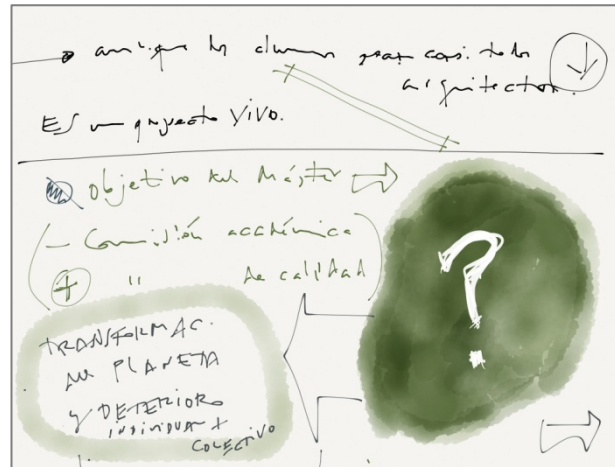 aunque los alumnos sean casi todos
arquitectos.
Es un proyecto vivo.
objetivo del Máster
- Comisión académica
+ " de calidad
?
TRANSFORMAC.
del PLANETA
y DETERIORO
INDIVIDUAL +
COLECTIVO